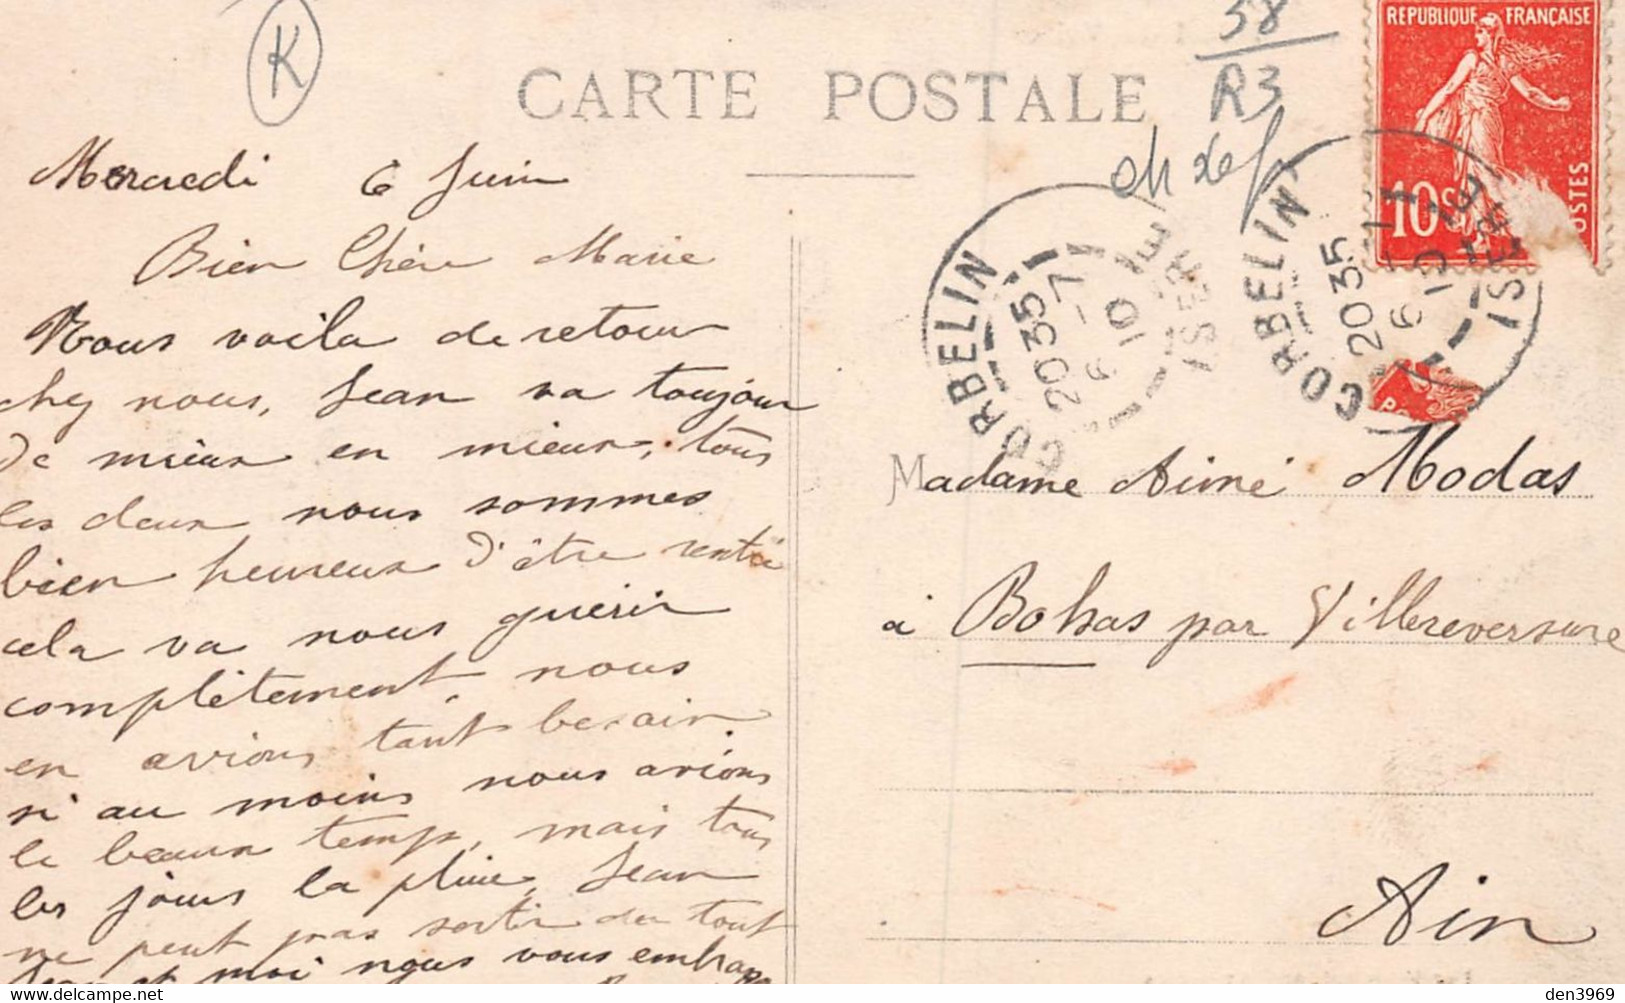 K
58
R3
CARTE POSTALE
REPUBLIQUE FRANÇAISE
10c
POSTES
CORBELIN
2035
6-7
10
ISERE
CORBELIN
2035
6-7
10
ISERE
Mercredi 6 Juin
Bien Chère Marie
Nous voila de retour
chez nous, Jean va toujour
de mieux en mieux, tous
les deux nous sommes
bien heureux d'être rentré
cela va nous guérir
complètement, nous
en avions tant besoin
si au moins nous avions
le beaux temps, mais tous
les jours la pluie, Jean
ne peut pas sortir du tout
Jean et moi nous vous embrass
Madame Aimé Modas
à Bohas par Villereversure
Ain
den3969